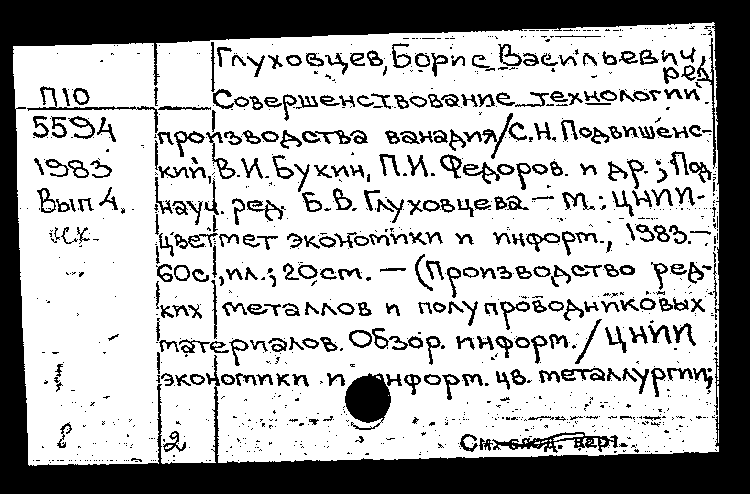 Глуховцев, Борис Васильевич,
ред.
П10
Совершенствование технологии
5594 производства ванадия/С.Н. Подвишенс-
1983 кий, В.И. Букин, П.И. Федоров. и др.; Под
Вып 4. науч. ред. Б.В. Глуховцева. — М.: ЦНИИ-
цветмет экономики и информ., 1983.—
60с., ил.; 20см. — (Производство ред-
ких металлов и полупроводниковых
материалов. Обзор. информ. / ЦНИИ
экономики и информ. цв. металлургии;
2
См. след. карт.